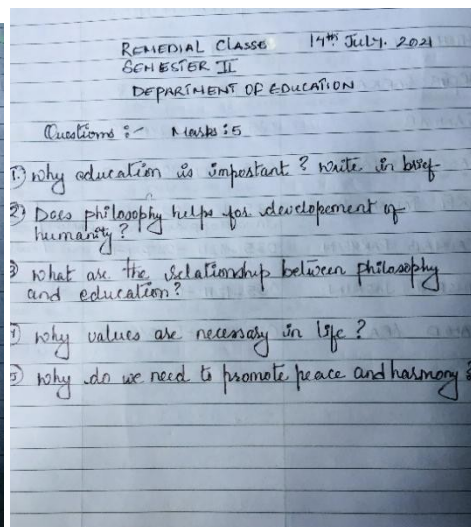 REMEDIAL CLASSE 14th July. 2021
SEMESTER II
DEPARTMENT OF EDUCATION
Questions :- Marks : 5
1) why education is important ? write in brief
2) Does philosophy helps for developement of
humanity ?
3 what are the relationship between philosophy
and education?
4) why values are necessary in life ?
5) why do we need to promote peace and harmony ?